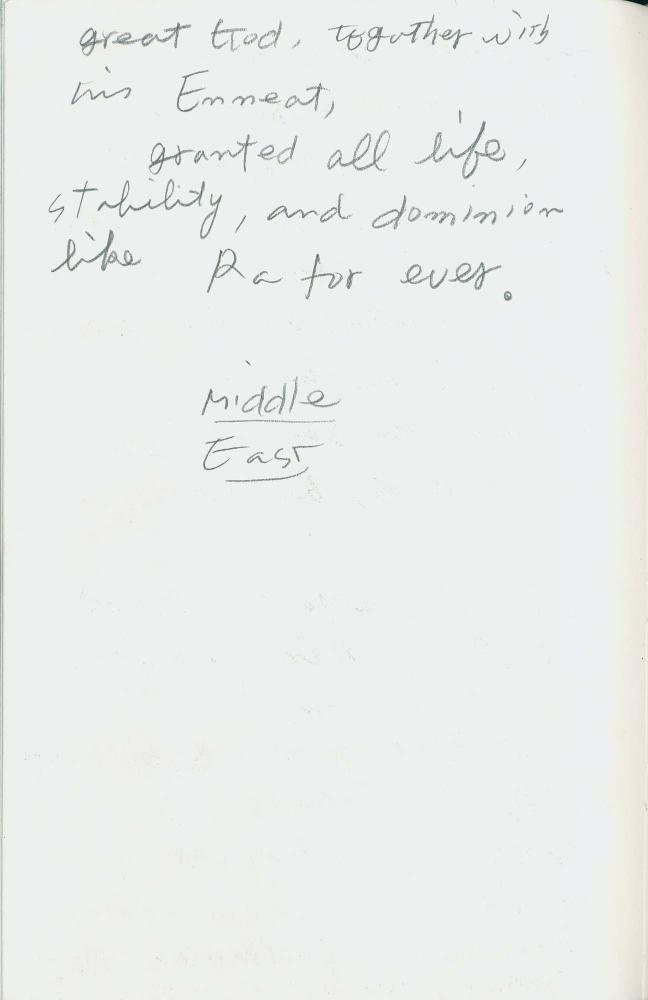 great God, together with
his Enneat,
granted all life,
stability, and dominion
like Ra for ever.
Middle
East